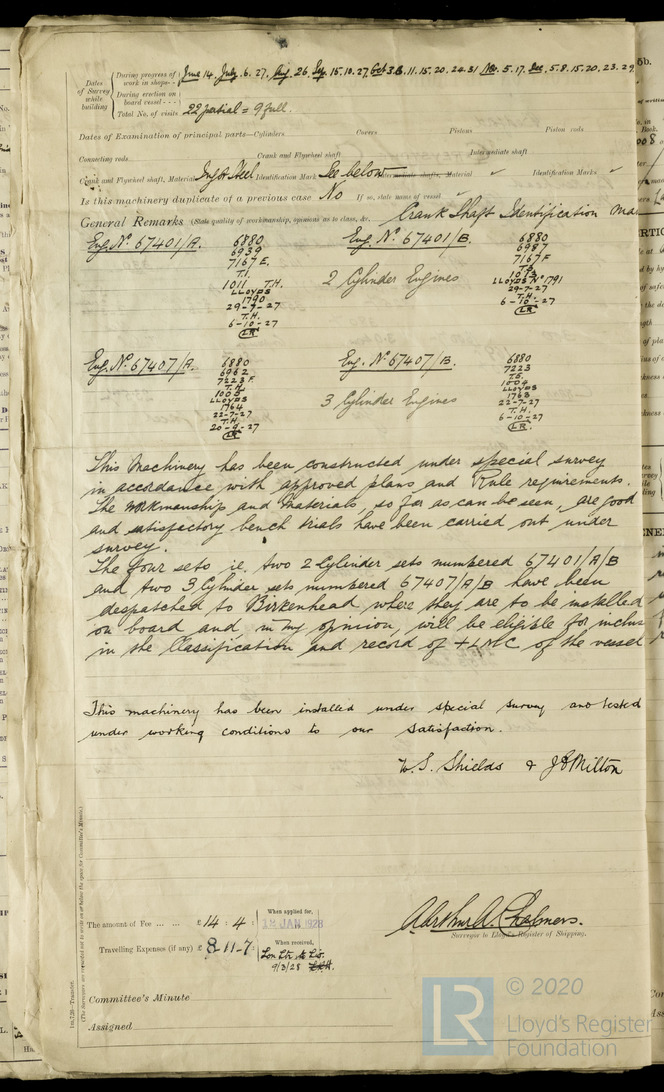 Dates of Survey while building
During progress of work in shops - - June 14. July. 6. 27. Aug. 26. Sep. 15. 10. 27. Oct 3. 11. 15. 20. 24. 31 Nov. 5. 17. Dec. 5. 8. 15. 20. 23. 29
During erection on board vessel - - -
Total No. of visits 22 partial = 9 full.
Dates of Examination of principal parts—Cylinders Covers Pistons Piston rods
Connecting rods Crank and Flywheel shaft Intermediate shaft
Crank and Flywheel shaft, Material Ingot Steel Identification Mark See below Intermediate shafts, Material ✓ Identification Marks ✓
Is this machinery duplicate of a previous case No If so, state name of vessel ✓
General Remarks (State quality of workmanship, opinions as to class, &c. Crank Shaft Identification Ma
Eng. No. 67401/A.
6880
6939
7167 F.
T.I.
1011 T.H.
LLOYDS
1790
29-7-27
T.H.
6-10-27
LR
Eng. No. 67401/B.
2 Cylinder Engines
6880
6987
7167 F
T.S.
1013
LLOYDS No 1791
29-7-27
T.H.
6-10-27
LR
Eng. No. 67407/A.
6880
6962
7223 F
T.H.
1005
LLOYDS
1764
22-7-27
T.H.
20-9-27
LR
Eng. No. 67407/B.
3 Cylinder Engines
6880
7223
T.S.
1004
LLOYDS
1763
22-7-27
T.H.
6-10-27
LR
This Machinery has been constructed under special survey
in accordance with approved plans and Rule requirements.
The workmanship and Materials, so far as can be seen, are good
and satisfactory bench trials have been carried out under
survey.
The four sets i.e. two 2 Cylinder sets numbered 67401/A/B
and two 3 Cylinder sets numbered 67407/A/B have been
despatched to Birkenhead, where they are to be installed
on board and, in my opinion, will be eligible for inclus
in the Classification and record of + LMC of the vessel
This machinery has been installed under special survey and tested
under working conditions to our satisfaction.
W. S. Shields & J. Milton
The amount of Fee ... ... £ 14 : 4 :
When applied for, 12 JAN 1928
Travelling Expenses (if any) £ 8-11-7 :
When received,
Lon Ltr to Lio.
9/3/28
Arthur A. Chalmers.
Surveyor to Lloyd's Register of Shipping.
Committee's Minute
Assigned
1m,7,26—Transfer.
(The Surveyors are requested not to write on or below the space for Committee's Minute.)
© 2020
LR
Lloyd's Register
Foundation